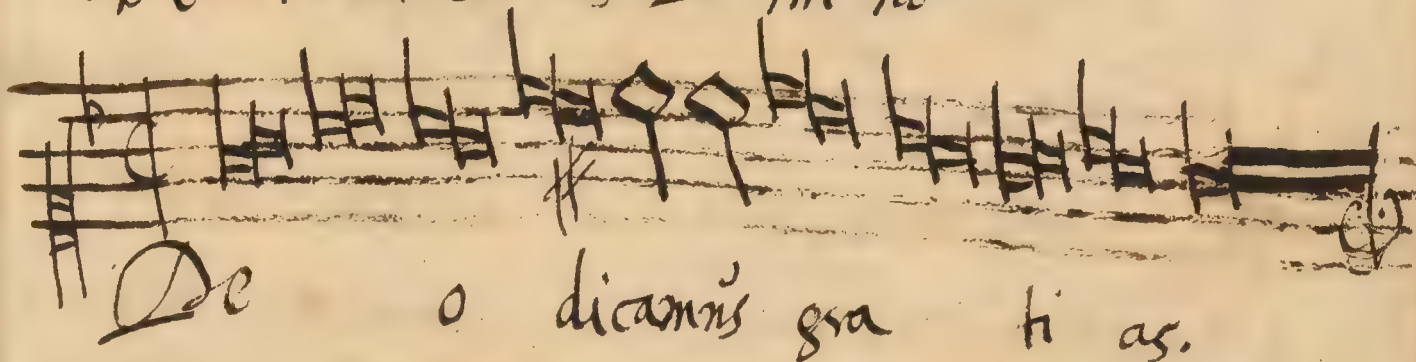 De o dicamus gra ti as.